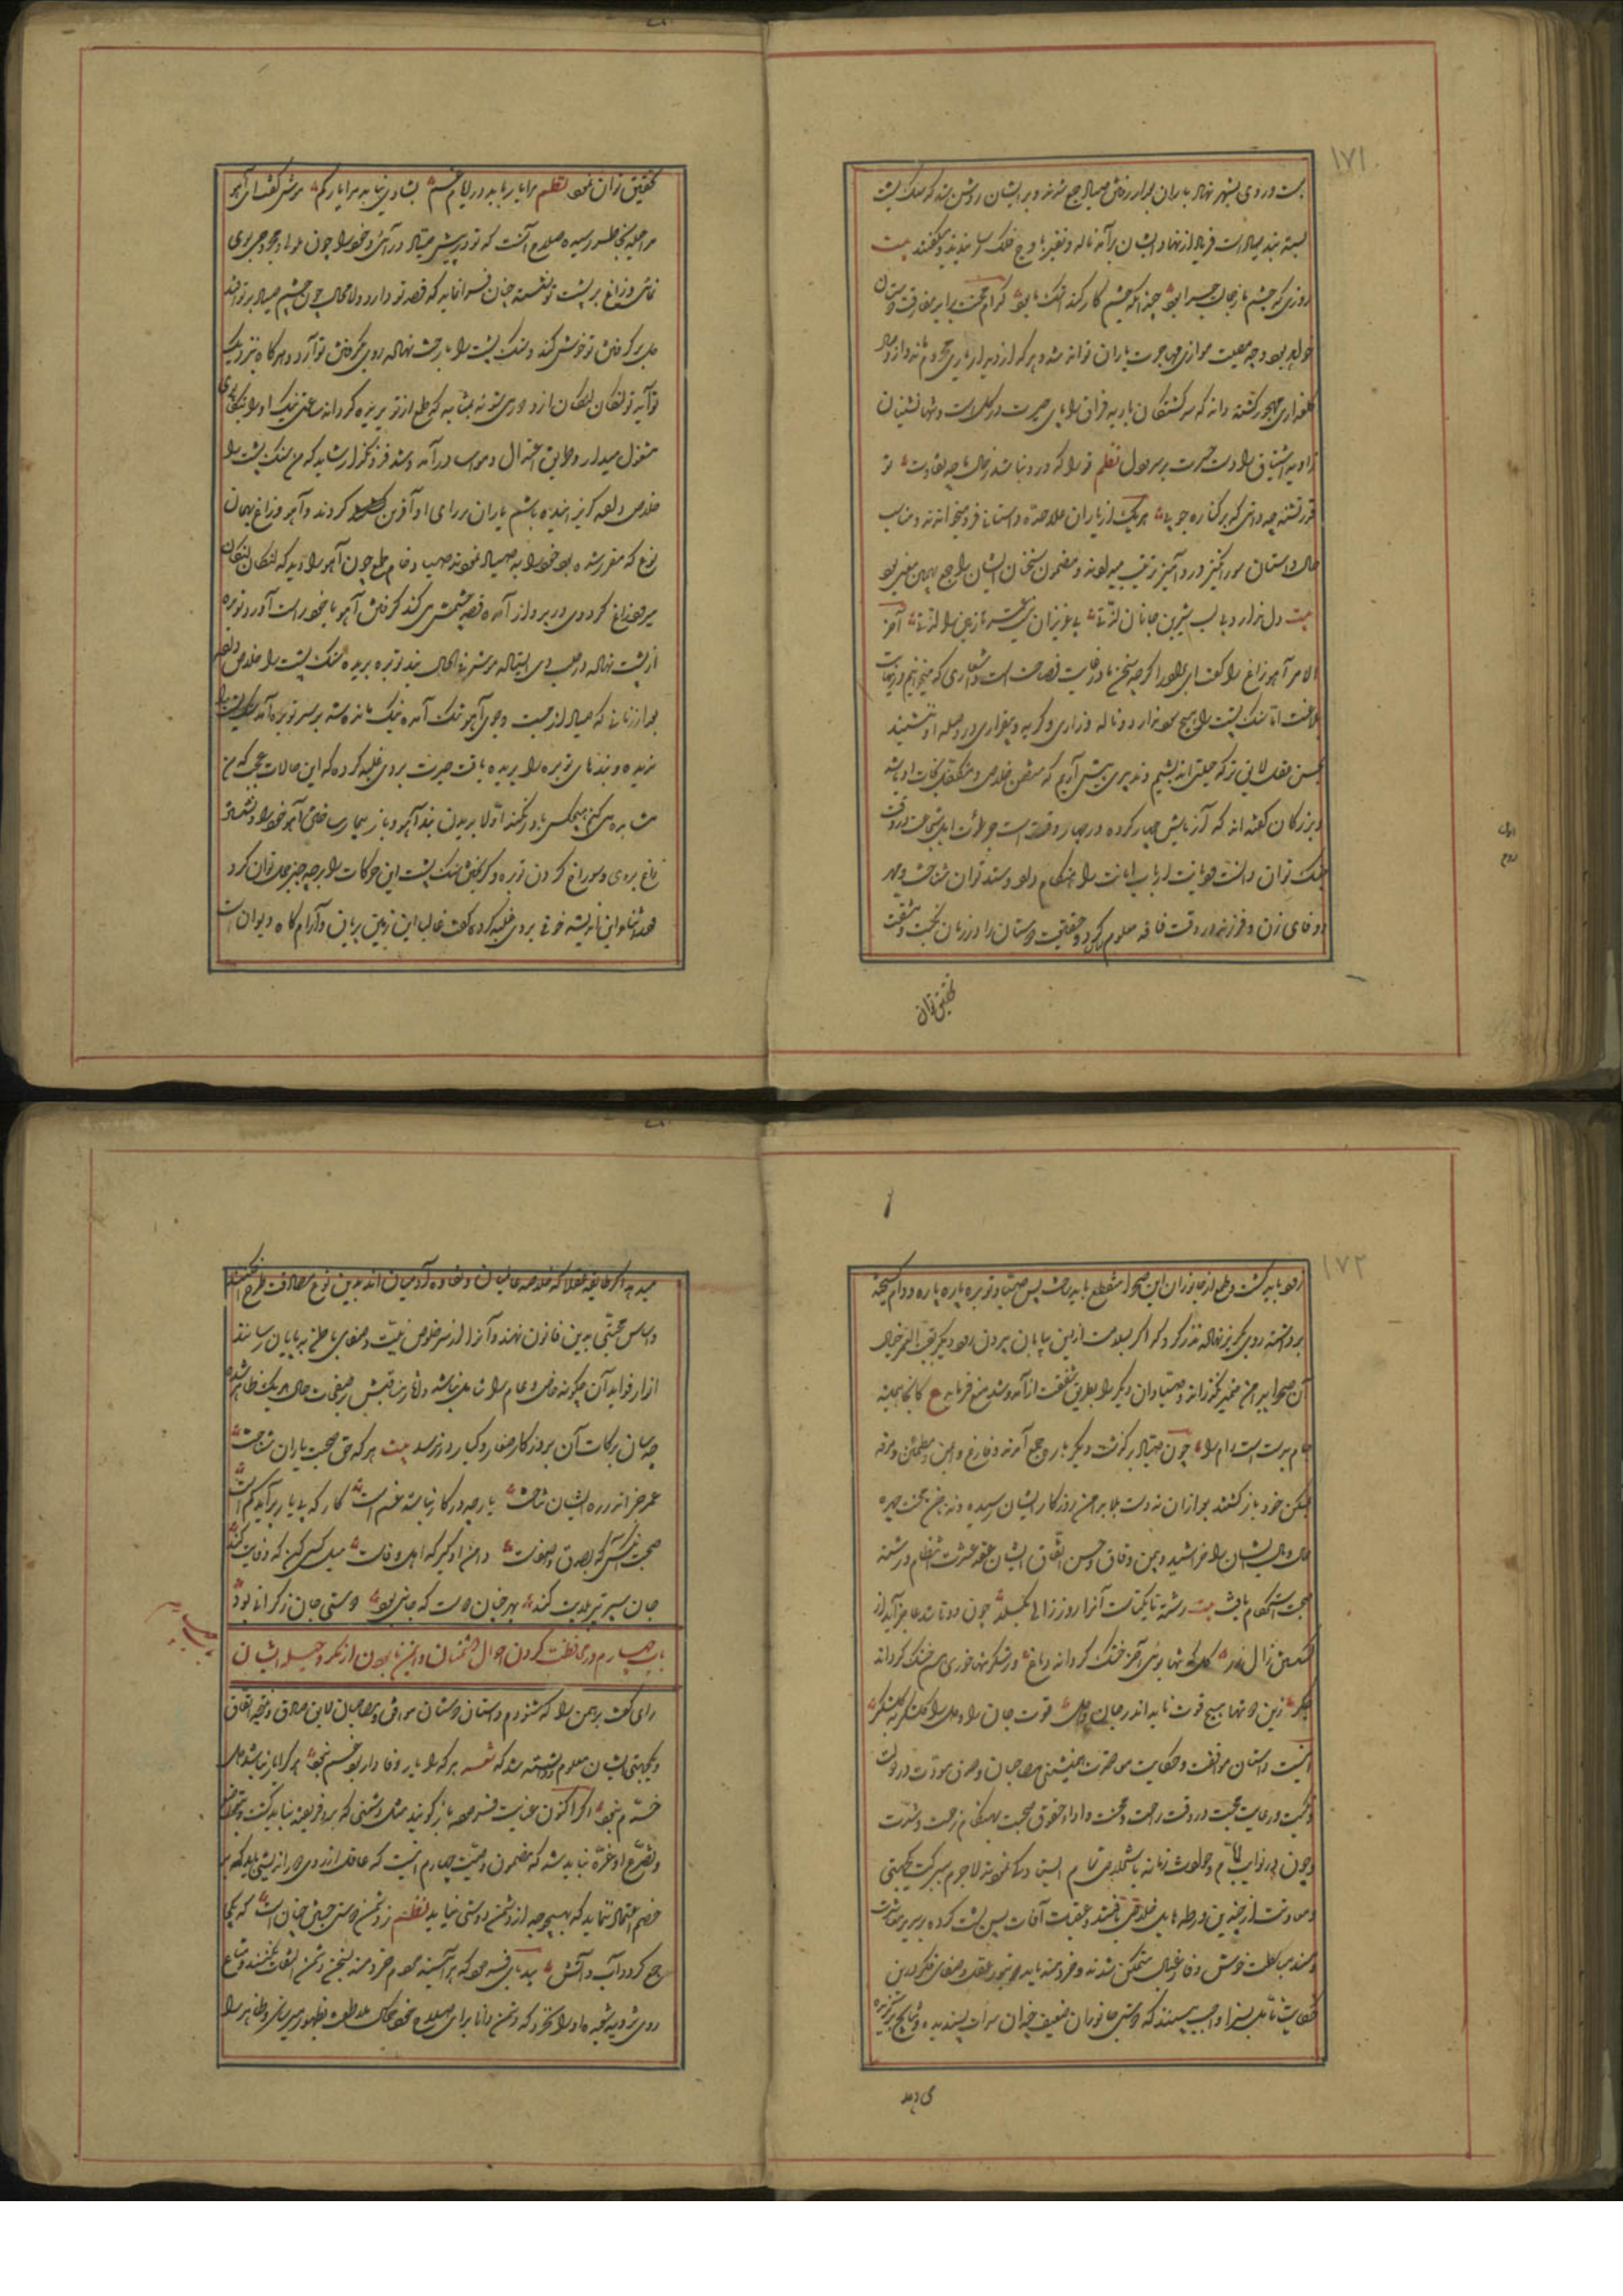 ۱۷۱
بست و روی بشهر نهاد یاران بعد از رفتن صیاد جمع شدند و بر ایشان روشن شد که سنگ پشت
بسته بند صیاد است فریاد از نهاد ایشان برآمد ناله و نفیر باوج فلک رسانیدند و میگفتند بیت
روزی که چشم ما ز جمالت جدا بود چندانکه چشم کار کند اشک ما بود کدام محنت برابر مفارقت دوستان
تواند بود و چه مصیبت موازی مهاجرت یاران تواند شد و هر که از دیدار یاری محروم ماند و از وصال
گلعذاری مهجور گشته داند که سرگشتگان بادیه فراق را پای حیرت در گل است و تنها نشینان
زاویه اشتیاق را دست حسرت بر سر و دل نظم تو را که درد نباشد ز حال ما چه تفاوت تو
قدر تشنه چه دانی که بر کناره جویی هر یک از یاران علاحده داستانی فرو میخواندند و مناسب
حال داستان سوزانگیز دردآمیز ترتیب مینمودند و مضمون سخنان ایشان راجع بهمین معنی بود
بیت دل ندارد بی لب شیرین جانان لذتی بی عزیزان نیست عمر نازنین را لذتی آخر
الامر آهو زاغ را گفت ای برادر اگرچه سخن ما در غایت فصاحت است و اشعاری که میخوانیم در نهایت
بلاغت اما سنگ پشت را هیچ سود ندارد و ناله و زاری و گریه و بیقراری در حوصله او ننشیند
بحسن عهد لایق تر که حیلتی اندیشیم و تدبیری پیش آریم که متضمن خلاص و متکفل نجات او باشد
و بزرگان گفته اند که آزمایش چهار گروه در چهار وقت است جرأت اهل شجاعت در وقت
جنگ توان دانست و دیانت ارباب امانت را هنگام داد و ستد توان شناخت و مهر
و وفای زن و فرزند در وقت فاقه معلوم گردد و حقیقت دوستان را در زمان نکبت و مشقت
تحقیق توان
تحقیق توان نمود نظم مرا یار باید در ایام غم بشادی نیاید مرا یار کم موش گفت ای آهو
مرا حیله بخاطر رسیده صلاح آنست که تو در پیش صیاد درآئی و خود را چون ملول و مجروحی بدو
نمائی و زاغ بر پشت تو نشسته چنان فرا نماید که قصد تو دارد و لا محاله چون چشم صیاد بر تو افتد
دل بر گرفتن تو خوش کند و سنگ پشت را با رخت نهاده روی بگرفتن تو آرد و هرگاه نزدیک
تو آید تو لنگان لنگان ازو دوری شو نه بمثابه که طمع از تو بریده گرداند ساعتی نیک او را بتکاپوی
مشغول میدار و طریق اعتدال و مواسا در آمد و شد فرو مگذار شاید که من سنگ پشت را
خلاصی داده گریزانیده باشم یاران بر رای او آفرین کردند و آهو و زاغ بهمان
نوع که مقرر شده بود خود را به صیاد نمودند صیاد خام طمع چون آهو را دید که لنگان لنگان
میرود و زاغ گرد وی در پرواز آمده قصد چشمش میکند گرفتن آهو با خود راست آورد و توبره
از پشت نهاده در طلب وی ایستاد موش فی الحال بند توبره بریده سنگ پشت را خلاص داد
بعد از زمانی که صیاد از جست و جوی آهو بتنگ آمده نیک مانده شد بر سر توبره آمد سنگ پشت را
ندید و بندهای توبره را بریده یافت حیرت بر وی غلبه کرده که این حالات عجب که من
مشاهده میکنم هیچکس باور نکند اولا بریدن بند آهو و باز بیمار ساختن آهو خود را و نشستن
زاغ بر وی و سوراخ کردن توبره و گریختن سنگ پشت این حرکات را بر چه چیز حمل توان کرد
در اثنای این اندیشه خوف بر وی غلبه کرده گفت غالبا این زمین پریان و آرامگاه دیوان است
۱۷۲
زود باید گشت و طمع از جانوران این صحرا منقطع باید ساخت پس صیاد توبره پاره پاره و دام گسیخته
برداشته روی بگریز نهاد نذر کرد که اگر بسلامت ازین بیابان بیرون رود دیگر بقیة العمر خیال
آن صحرا پیرامن ضمیر نگذراند و صیادان دیگر را بطریق شفقت از آمد و شد منع فرماید ع کانجا همیشه
باد بدست است دام را چون صیاد برگذشت دیگر بار جمع آمدند و فارغ و ایمن و مطمئن و مرفه
بمسکن خود بازگشتند بعد از آن نه دست بلا بدامن روزگار ایشان رسیده و نه ناخن محنت چهره
حال و بال ایشان را خراشید و بیمن وفاق و حسن اتفاق ایشان عقد عشرت انتظام و رشته
صحبت استحکام یافت بیت رشته تا یکتاست آنرا زور زالی بگسلد چون دو تا شد عاجز آید از
گسستن زال زر گل که تنها بوئی آخر خشک گرداند دماغ ور شکر تنها خوری هم خشک گرداند
جگر زین دو تنها هیچ قوت ناید اندر جان و دل قوت جان را و دل را گلشکر به گلشکر
اینست داستان موافقت و حکایت معاضرت همنشینی مصاحبان و صدق مودت در دولت
و نکبت و رعایت صحبت در وقت راحت و محنت و ادای حقوق صحبت بهنگام زحمت و شدت
و چون در نوایب ایام و حوادث زمانه ثبات قدمی تمام ایستادگی نمودند لاجرم ببرکت یکجهتی
و معاونت از چنین ورطه هایل خلاص یافتند و عقبات آفات پس پشت کرده بر سریر معاشرت
و مسند مباسطت خوش و فارغ البال متمکن شدند و خردمند باید بنور عقل و صفای فکر درین
حکایت تأمل بسزا واجب بیند که دوستی جانوران ضعیف چندان ثمرات پسندیده و نتایج برگزیده
می دهد
میدهد اگر طایفه عقلا که خلاصه عالمیان و نقاوه آدمیان اند بدین نوع مصادقت طرح افکنند
و اساس محبتی بدین قانون نهند و آنرا از سر خلوص نیت و صفای باطن به پایان رسانند
انوار فواید آن چگونه خاص و عام را شامل نباشد و آثار منافعش بر صفحات حال هر یک ظاهر شده
چه سان برکات آن بروزگار صغار و کبار در نرسد بیت هر که حق صحبت یاران شناخت
عمر خرانه در ره ایشان بباخت یار چو در کار نباشد غم است کار که بی یار برآید کم است
صحبت آنکس که بصدق و صفاست دامن او گیر که اهل وفاست میل کسی کن که وفایت کند
جان سپر تیر بلایت کند بهر جنان دوست که جانی بود دوستی جان ز گرانی بود
باب چهارم در ملاحظت کردن احوال دشمنان و ایمن نابودن از مکر و حیله ایشان
رای گفت برهمن را که شنودم داستان دوستان موافق و مصاحبان لایق صادق و نتیجه اتفاق
و یکجهتی ایشان معلوم و دانسته شد که شعر هر که را یار وفادار بود غم نخورد هر کرا یار نباشد دل
خرم نبود اکنون عنایت فرموده باز گویند مثل دشمنی که بدو فریفته نباید گشت و بتملق
و تضرع او غره نباید شد که مضمون وصیت چهارم اینست که عاقل از روی دوراندیشی باید که بر
خصم اعتماد ننماید که بهیچ وجه از دشمن دوستی نیاید نظم ز دشمن دوستی جستن چنان است که یکجا
جمع کردن آب و آتش بیدپای فرمود که هر آینه مردم خردمند بسخن دشمن التفات نکنند و متاع
روی دروی شعبده او را نخرد که دشمن دانا برای صلاح خود کمال ملاطفت بظهور میرساند و ظاهر را